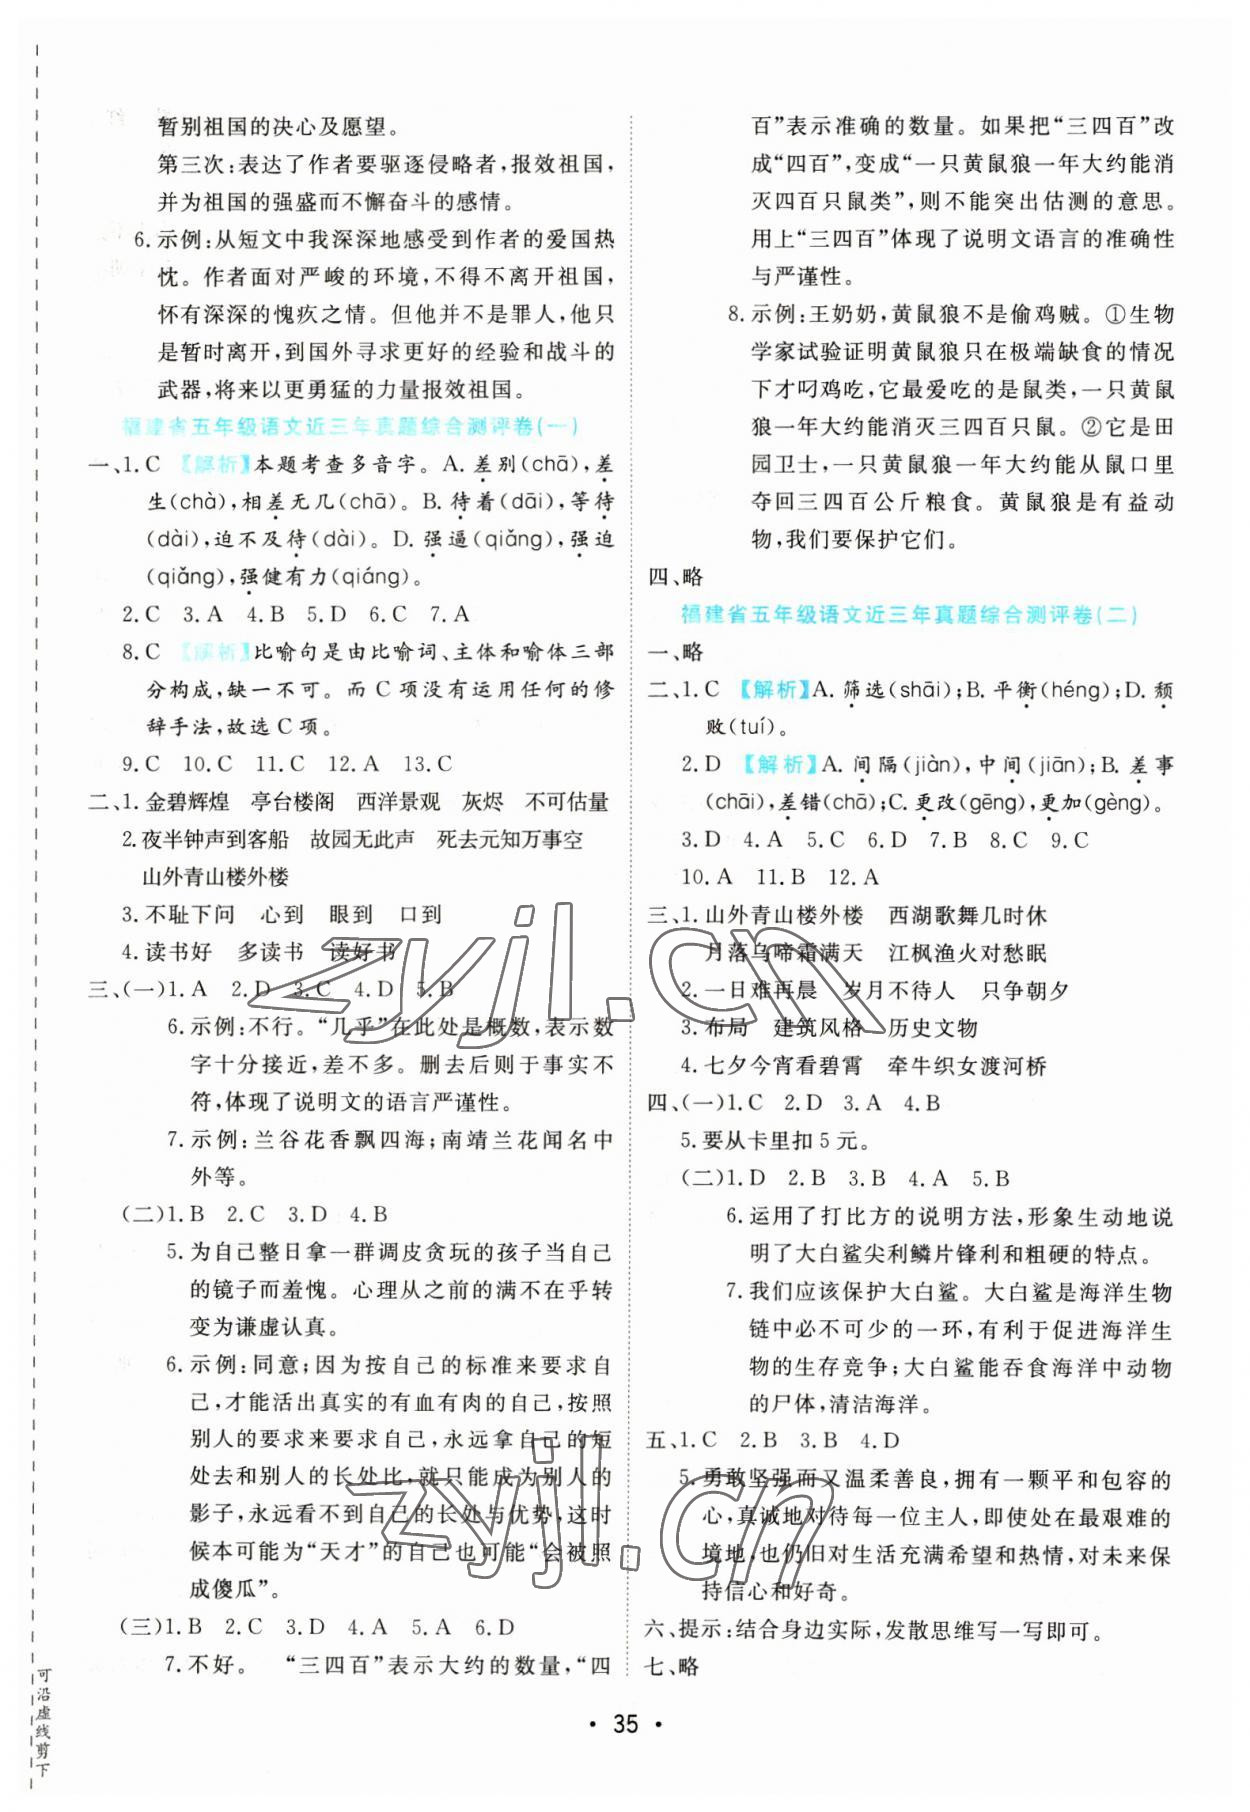 暂别祖国的决心及愿望。
第三次:表达了作者要驱逐侵略者,报效祖国,
并为祖国的强盛而不懈奋斗的感情。
6. 示例:从短文中我深深地感受到作者的爱国热
忱。作者面对严峻的环境,不得不离开祖国,
怀有深深的愧疚之情。但他并不是罪人,他只
是暂时离开,到国外寻求更好的经验和战斗的
武器,将来以更勇猛的力量报效祖国。
福建省五年级语文近三年真题综合测评卷(一)
一、1. C 【解析】本题考查多音字。A. 差别(chā),差
生(chà),相差无几(chā)。B. 待着(dāi),等待
(dài),迫不及待(dài)。D. 强逼(qiǎng),强迫
(qiǎng),强健有力(qiáng)。
2. C 3. A 4. B 5. D 6. D 7. A
8. C 【解析】比喻句是由比喻词、主体和喻体三部
分构成,缺一不可。而 C 项没有运用任何的修
辞手法,故选 C 项。
9. C 10. C 11. C 12. A 13. C
二、1. 金碧辉煌 亭台楼阁 西洋景观 灰烬 不可估量
2. 夜半钟声到客船 故园无此声 死去元知万事空
山外青山楼外楼
3. 不耻下问 心到 眼到 口到
4. 读书好 多读书 读好书
三、(一)1. A 2. D 3. C 4. D 5. B
6. 示例:不行。“几乎”在此处是概数,表示数
字十分接近,差不多。删去后则于事实不
符,体现了说明文的语言严谨性。
7. 示例:兰谷花香飘四海;南靖兰花闻名中
外等。
(二)1. B 2. C 3. D 4. B
5. 为自己整日拿一群调皮贪玩的孩子当自己
的镜子而羞愧。心理从之前的满不在乎转
变为谦虚认真。
6. 示例:同意;因为按自己的标准来要求自
己,才能活出真实的有血有肉的自己,按照
别人的要求来要求自己,永远拿自己的短
处去和别人的长处比,就只能成为别人的
影子,永远看不到自己的长处与优势,这时
候本可能为“天才”的自己也可能“会被照
成傻瓜”。
(三)1. B 2. C 3. A 4. B 5. A 6. D
7. 不好。 “三四百”表示大约的数量,“四
百”表示准确的数量。如果把“三四百”改
成“四百”,变成“一只黄鼠狼一年大约能消
灭四百只鼠类”,则不能突出估测的意思。
用上“三四百”体现了说明文语言的准确性
与严谨性。
8. 示例:王奶奶,黄鼠狼不是偷鸡贼。①生物
学家试验证明黄鼠狼只在极端缺食的情况
下才叼鸡吃,它最爱吃的是鼠类,一只黄鼠
狼一年大约能消灭三四百只鼠。②它是田
园卫士,一只黄鼠狼一年大约能从鼠口里
夺回三四百公斤粮食。黄鼠狼是有益动
物,我们要保护它们。
四、略
福建省五年级语文近三年真题综合测评卷(二)
一、略
二、1. C 【解析】A. 筛选(shāi);B. 平衡(héng);D. 颓
败(tuí)。
2. D 【解析】A. 间隔(jiàn),中间(jiān);B. 差事
(chāi),差错(chā);C. 更改(gēng),更加(gèng)。
3. D 4. A 5. C 6. D 7. B 8. C 9. C
10. A 11. B 12. A
三、1. 山外青山楼外楼 西湖歌舞几时休
月落乌啼霜满天 江枫渔火对愁眠
2. 一日难再晨 岁月不待人 只争朝夕
3. 布局 建筑风格 历史文物
4. 七夕今宵看碧霄 牵牛织女渡河桥
四、(一)1. C 2. D 3. A 4. B
5. 要从卡里扣 5 元。
(二)1. D 2. B 3. B 4. A 5. B
6. 运用了打比方的说明方法,形象生动地说
明了大白鲨尖利鳞片锋利和粗硬的特点。
7. 我们应该保护大白鲨。大白鲨是海洋生物
链中必不可少的一环,有利于促进海洋生
物的生存竞争;大白鲨能吞食海洋中动物
的尸体,清洁海洋。
五、1. C 2. B 3. B 4. D
5. 勇敢坚强而又温柔善良,拥有一颗平和包容的
心,真诚地对待每一位主人,即使处在最艰难的
境地,也仍旧对生活充满希望和热情,对未来保
持信心和好奇。
六、提示:结合身边实际,发散思维写一写即可。
七、略
• 35 •
可沿虚线剪下
zyjl.cn
zyjl.cn